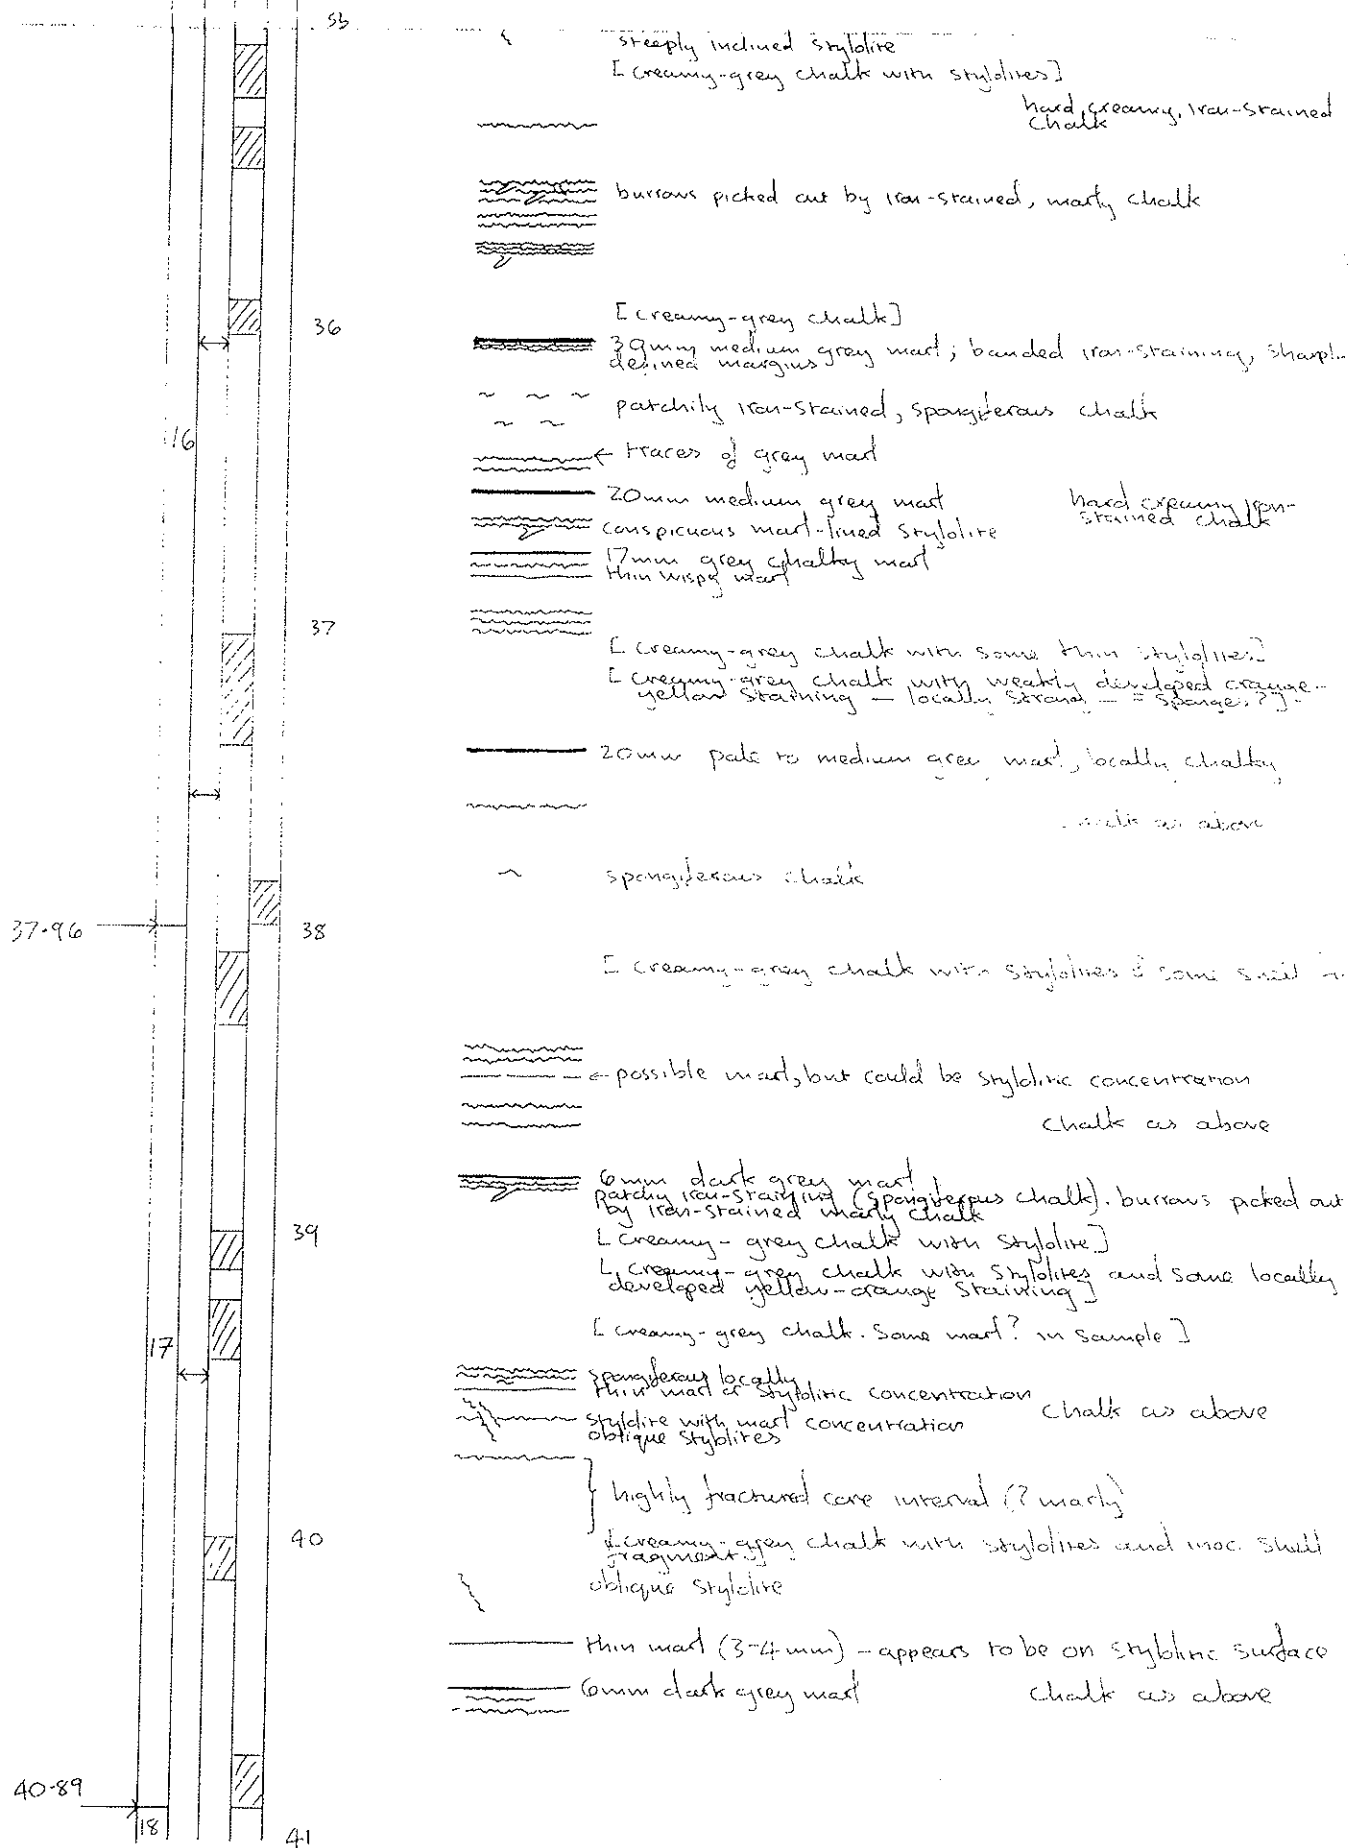 35
steeply inclined stylolite
[creamy-grey chalk with stylolites]
hard, creamy, iron-stained
chalk
burrows picked out by iron-stained, marly chalk
[creamy-grey chalk]
36
39mm medium grey marl; banded iron-staining, sharpl
defined margins
patchily iron-stained, spongiferous chalk
16
← traces of grey marl
20mm medium grey marl
hard creamy iron-
stained chalk
conspicuous marl-lined stylolite
17mm grey chalky marl
thin wispy marl
37
[creamy-grey chalk with some thin stylolites]
[creamy-grey chalk with weakly developed orange-
yellow staining - locally strong - = sponges?]
20mm pale to medium grey marl, locally chalky
chalk as above
spongiferous chalk
37.96
38
[creamy-grey chalk with stylolites & some shell
← possible marl, but could be stylolitic concentration
chalk as above
6mm dark grey marl
patchy iron-staining (spongiferous chalk). burrows picked out
by iron-stained marly chalk
39
[creamy-grey chalk with stylolite]
[creamy-grey chalk with stylolites and some locally
developed yellow-orange staining]
[creamy-grey chalk. Some marl? in sample]
17
spongiferous locally
thin marl or stylolitic concentration
chalk as above
stylolite with marl concentration
oblique stylolites
highly fractured core interval (? marly)
40
[creamy-grey chalk with stylolites and inoc. shell
fragments]
oblique stylolite
thin marl (3-4mm) - appears to be on stylolitic surface
6mm dark grey marl
chalk as above
40.89
18
41